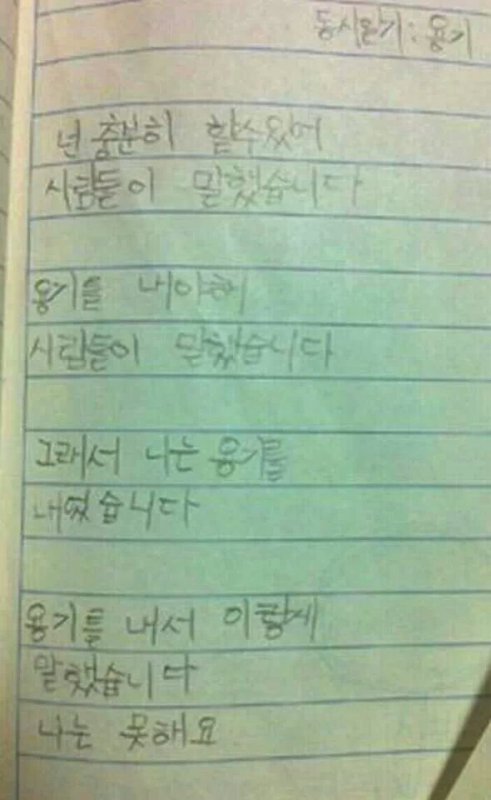 동시일기: 용기
넌 충분히 할수있어
사람들이 말했습니다
용기를 내야해
사람들이 말했습니다
그래서 나는 용기를
내었습니다
용기를 내서 이렇게
말했습니다
나는 못해요